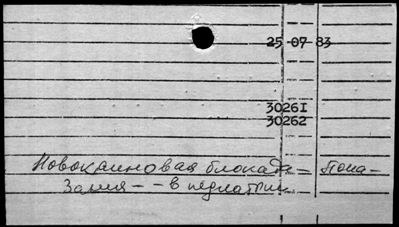 25 07 83
3026I
30262
Новокаиновая блокада – Пока-
зания – – в педиатрии